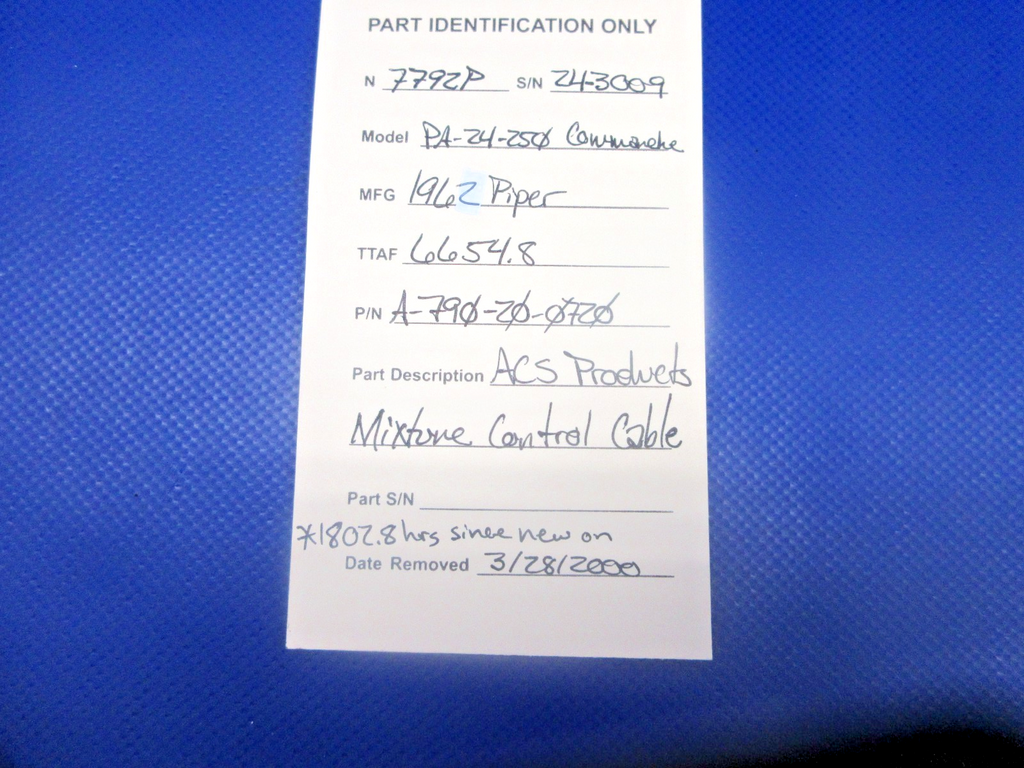 PART IDENTIFICATION ONLY
N 7792P S/N 24-3009
Model PA-24-250 Commanche
MFG 1962 Piper
TTAF 6654.8
P/N A-790-20-0720
Part Description ACS Products
Mixture Control Cable
Part S/N
*1802.8 hrs since new on
Date Removed 3/28/2000